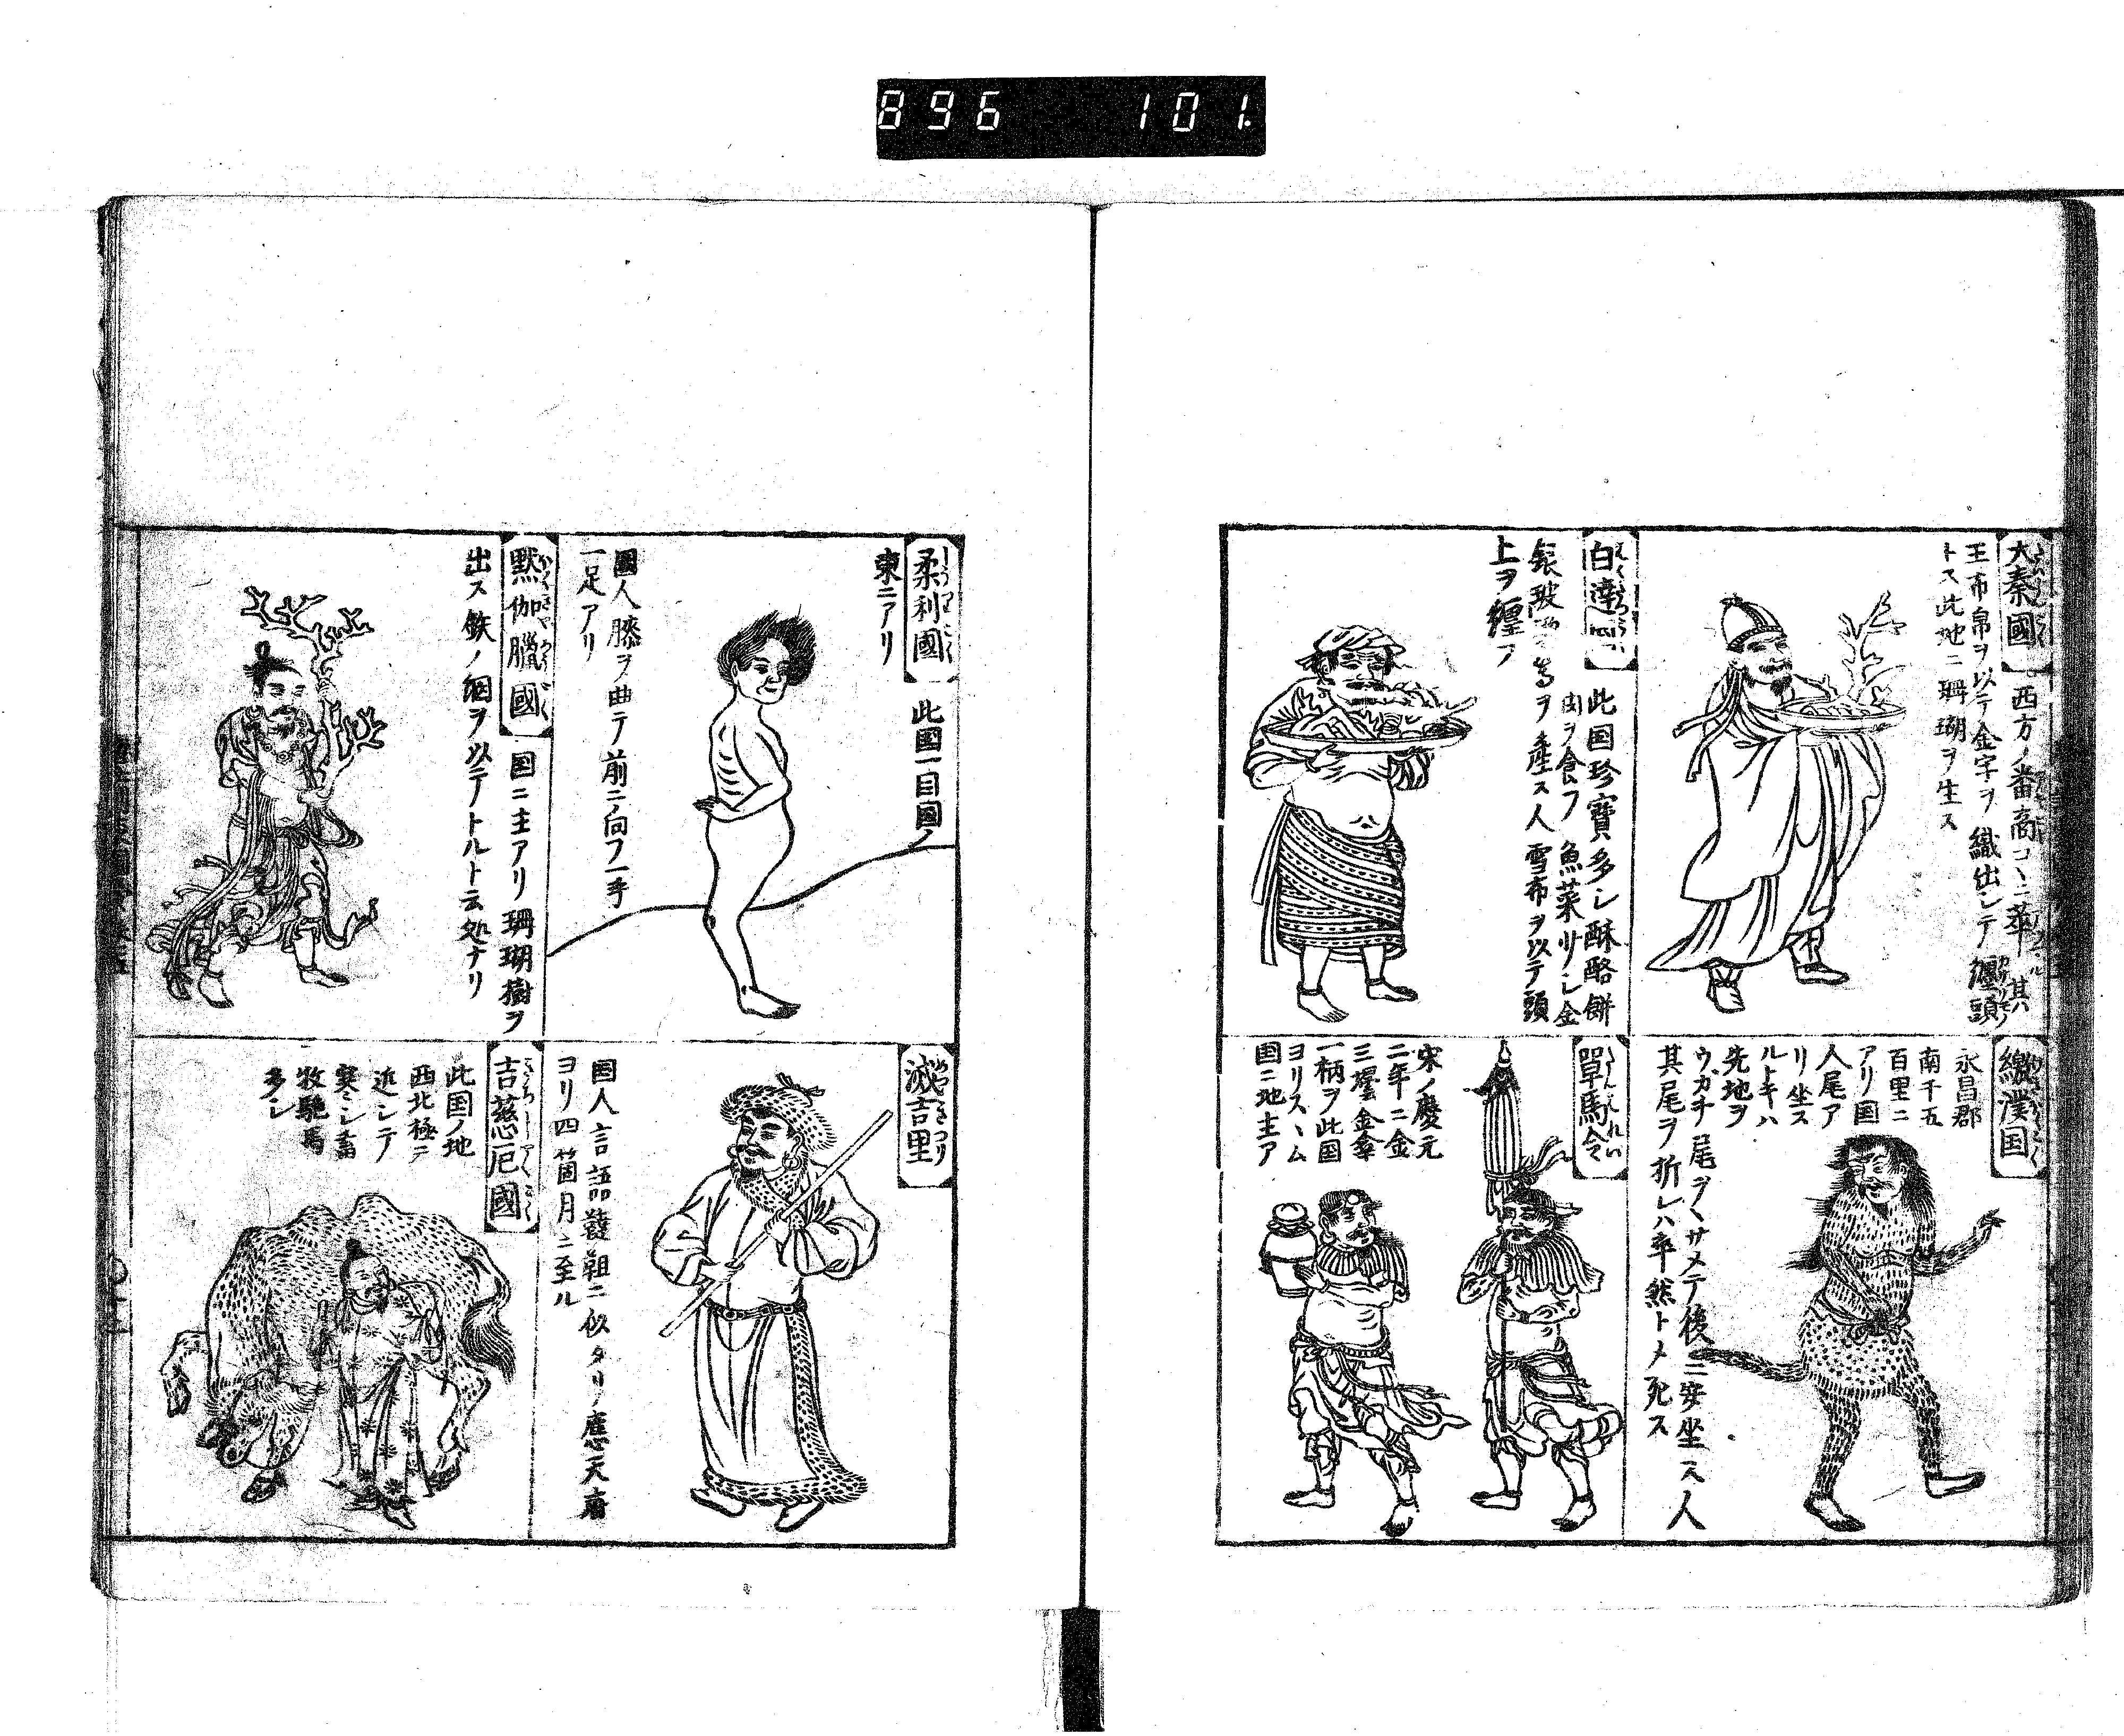 896 101.
大秦國 西方ノ番商コヽニ萃ル其
王布帛ヲ以テ金字ヲ織出シテ纏頭
トス此地ニ珊瑚ヲ生ス
白達 此国珍寳多シ酥酪餅
肉ヲ食フ魚菜少シ金
銀玻 等ヲ產ス人雪布ヲ以テ頭
上ヲ纏フ
繳濮国
永昌郡
南千五
百里ニ
アリ国
人尾ア
リ坐ス
ルトキハ
先地ヲ
ウガチ尾ヲヽサメテ後ニ安坐ス人
其尾ヲ折レハ卒然トメ死ス
單馬令
宋ノ慶元
二年ニ金
三壜金傘
一柄ヲ此国
ヨリスヽム
国ニ地主ア
柔利國 此国一目国ノ
東ニアリ
國人膝ヲ曲テ前ニ向フ一手
一足アリ
默伽臘國 国ニ主アリ珊瑚樹ヲ
出ス鉄ノ網ヲ以テトルト云処ナリ
滅吉里
国人言語韃靼ニ似タリ應天府
ヨリ四箇月ニ至ル
吉慈厄國
此国ノ地
西北極テ
近シテ
寒シ畜
牧駝馬
多シ